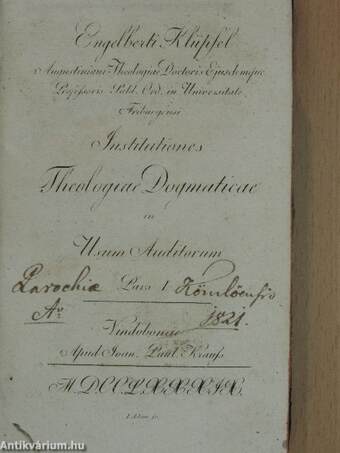 Engelberti Klüpfel
Augustiniani Theologiae Doctoris Ejusdemque
Professoris Publ. Ord. in Universitate
Friburgensi
Institutiones
Theologiae Dogmaticae
in
Usum Auditorum
Parochiæ Pars I Kömlöensis
Aº 1821.
Vindobonae
Apud Joan. Paul. Krauss
MDCCLXXXIX.
Antikvárium.hu